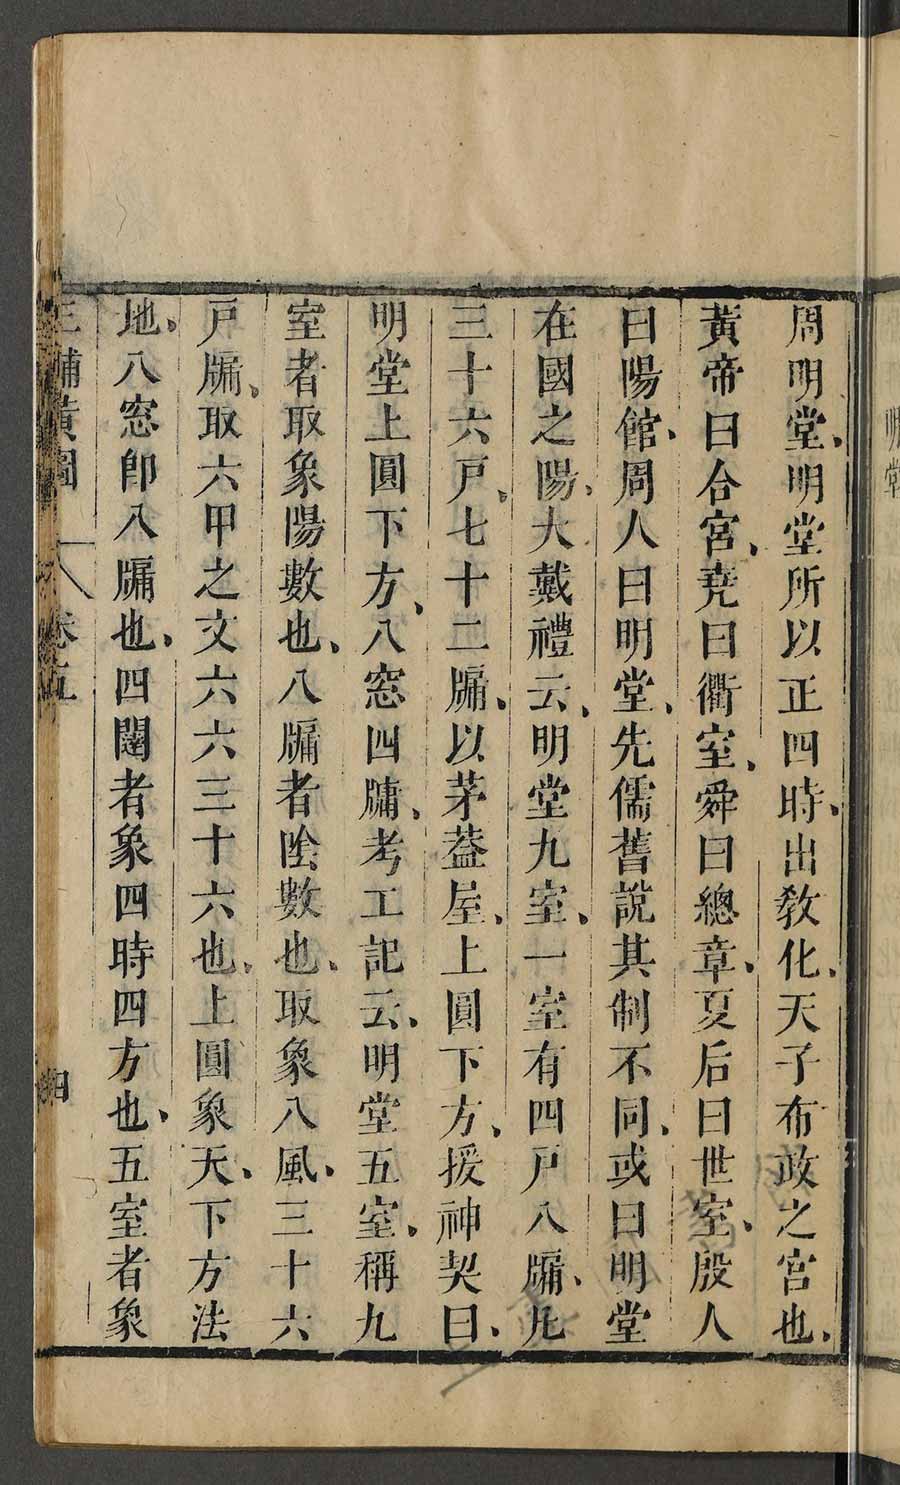 周明堂、明堂所以正四時、出敎化、天子布政之宮也、
黃帝曰合宮、堯曰衢室、舜曰總章、夏后曰世室、殷人
曰陽館、周人曰明堂、先儒舊說其制不同、或曰明堂
在國之陽、大戴禮云、明堂九室、一室有四戶八牖、凡
三十六戶、七十二牖、以茅葢屋、上圓下方、援神契曰、
明堂上圓下方、八窓四牖、考工記云、明堂五室、稱九
室者取象陽數也、八牖者陰數也、取象八風、三十六
戶牖、取六甲之文六六三十六也、上圓象天、下方法
地、八窓卽八牖也、四闥者象四時四方也、五室者象
三輔黃圖 卷五 四
明堂